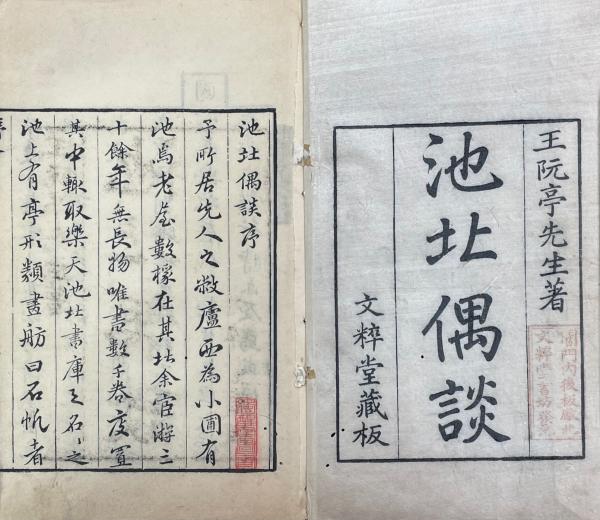 王阮亭先生著
池北偶談
文粹堂藏板
池北偶談序
予所居先人之敝廬西為小圃有
池焉老屋數椽在其北余宦游三
十餘年無長物唯書數千卷庋置
其中輒取樂天池北書庫之名〻之
池上有亭形類畫舫曰石帆者